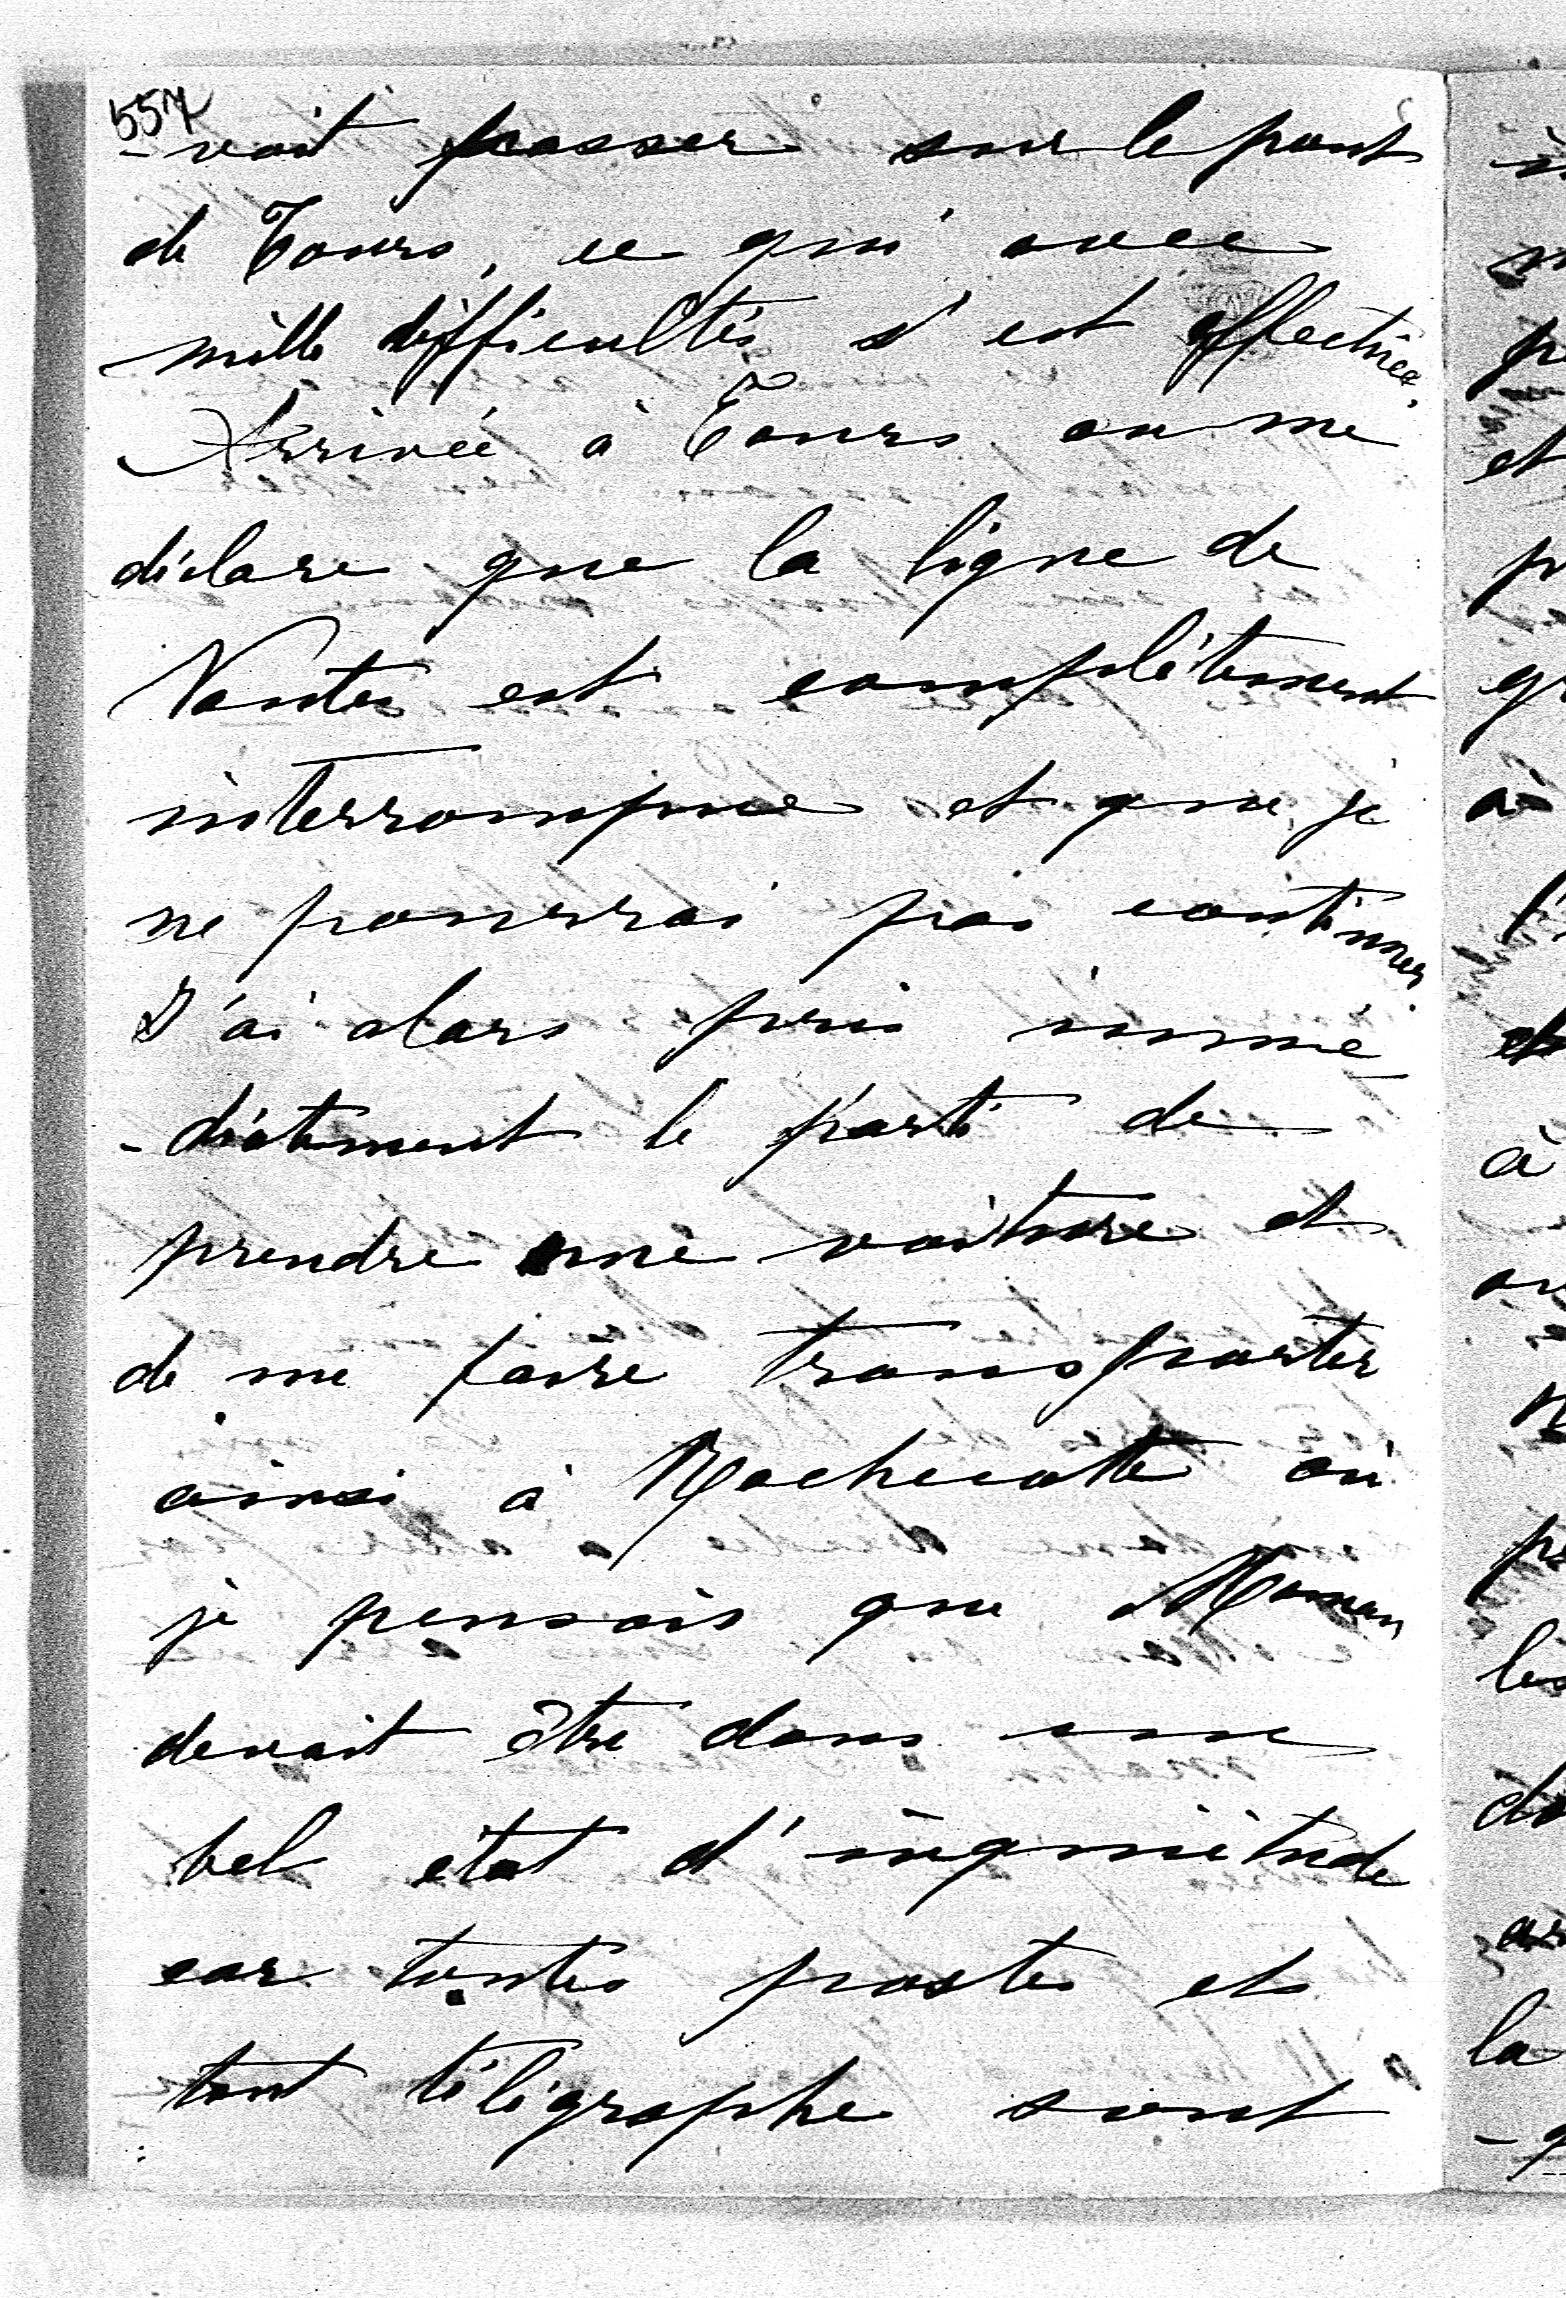 557
-vait passer sur le pont
de Tours, ce qui avec
mille difficultés s'est effectuée.
Arrivée à Tours on me
déclare que la ligne de
Nantes est complétement
interrompue et que je
ne pourrai pas continuer
J'ai alors pris immé
-diatement le parti de
prendre une voiture et
de me faire transporter
ainsi à Rochecotte où
je pensais que Maman
devait être dans une
bel état d'inquiétude
car toutes postes et
tout télégraphe sont